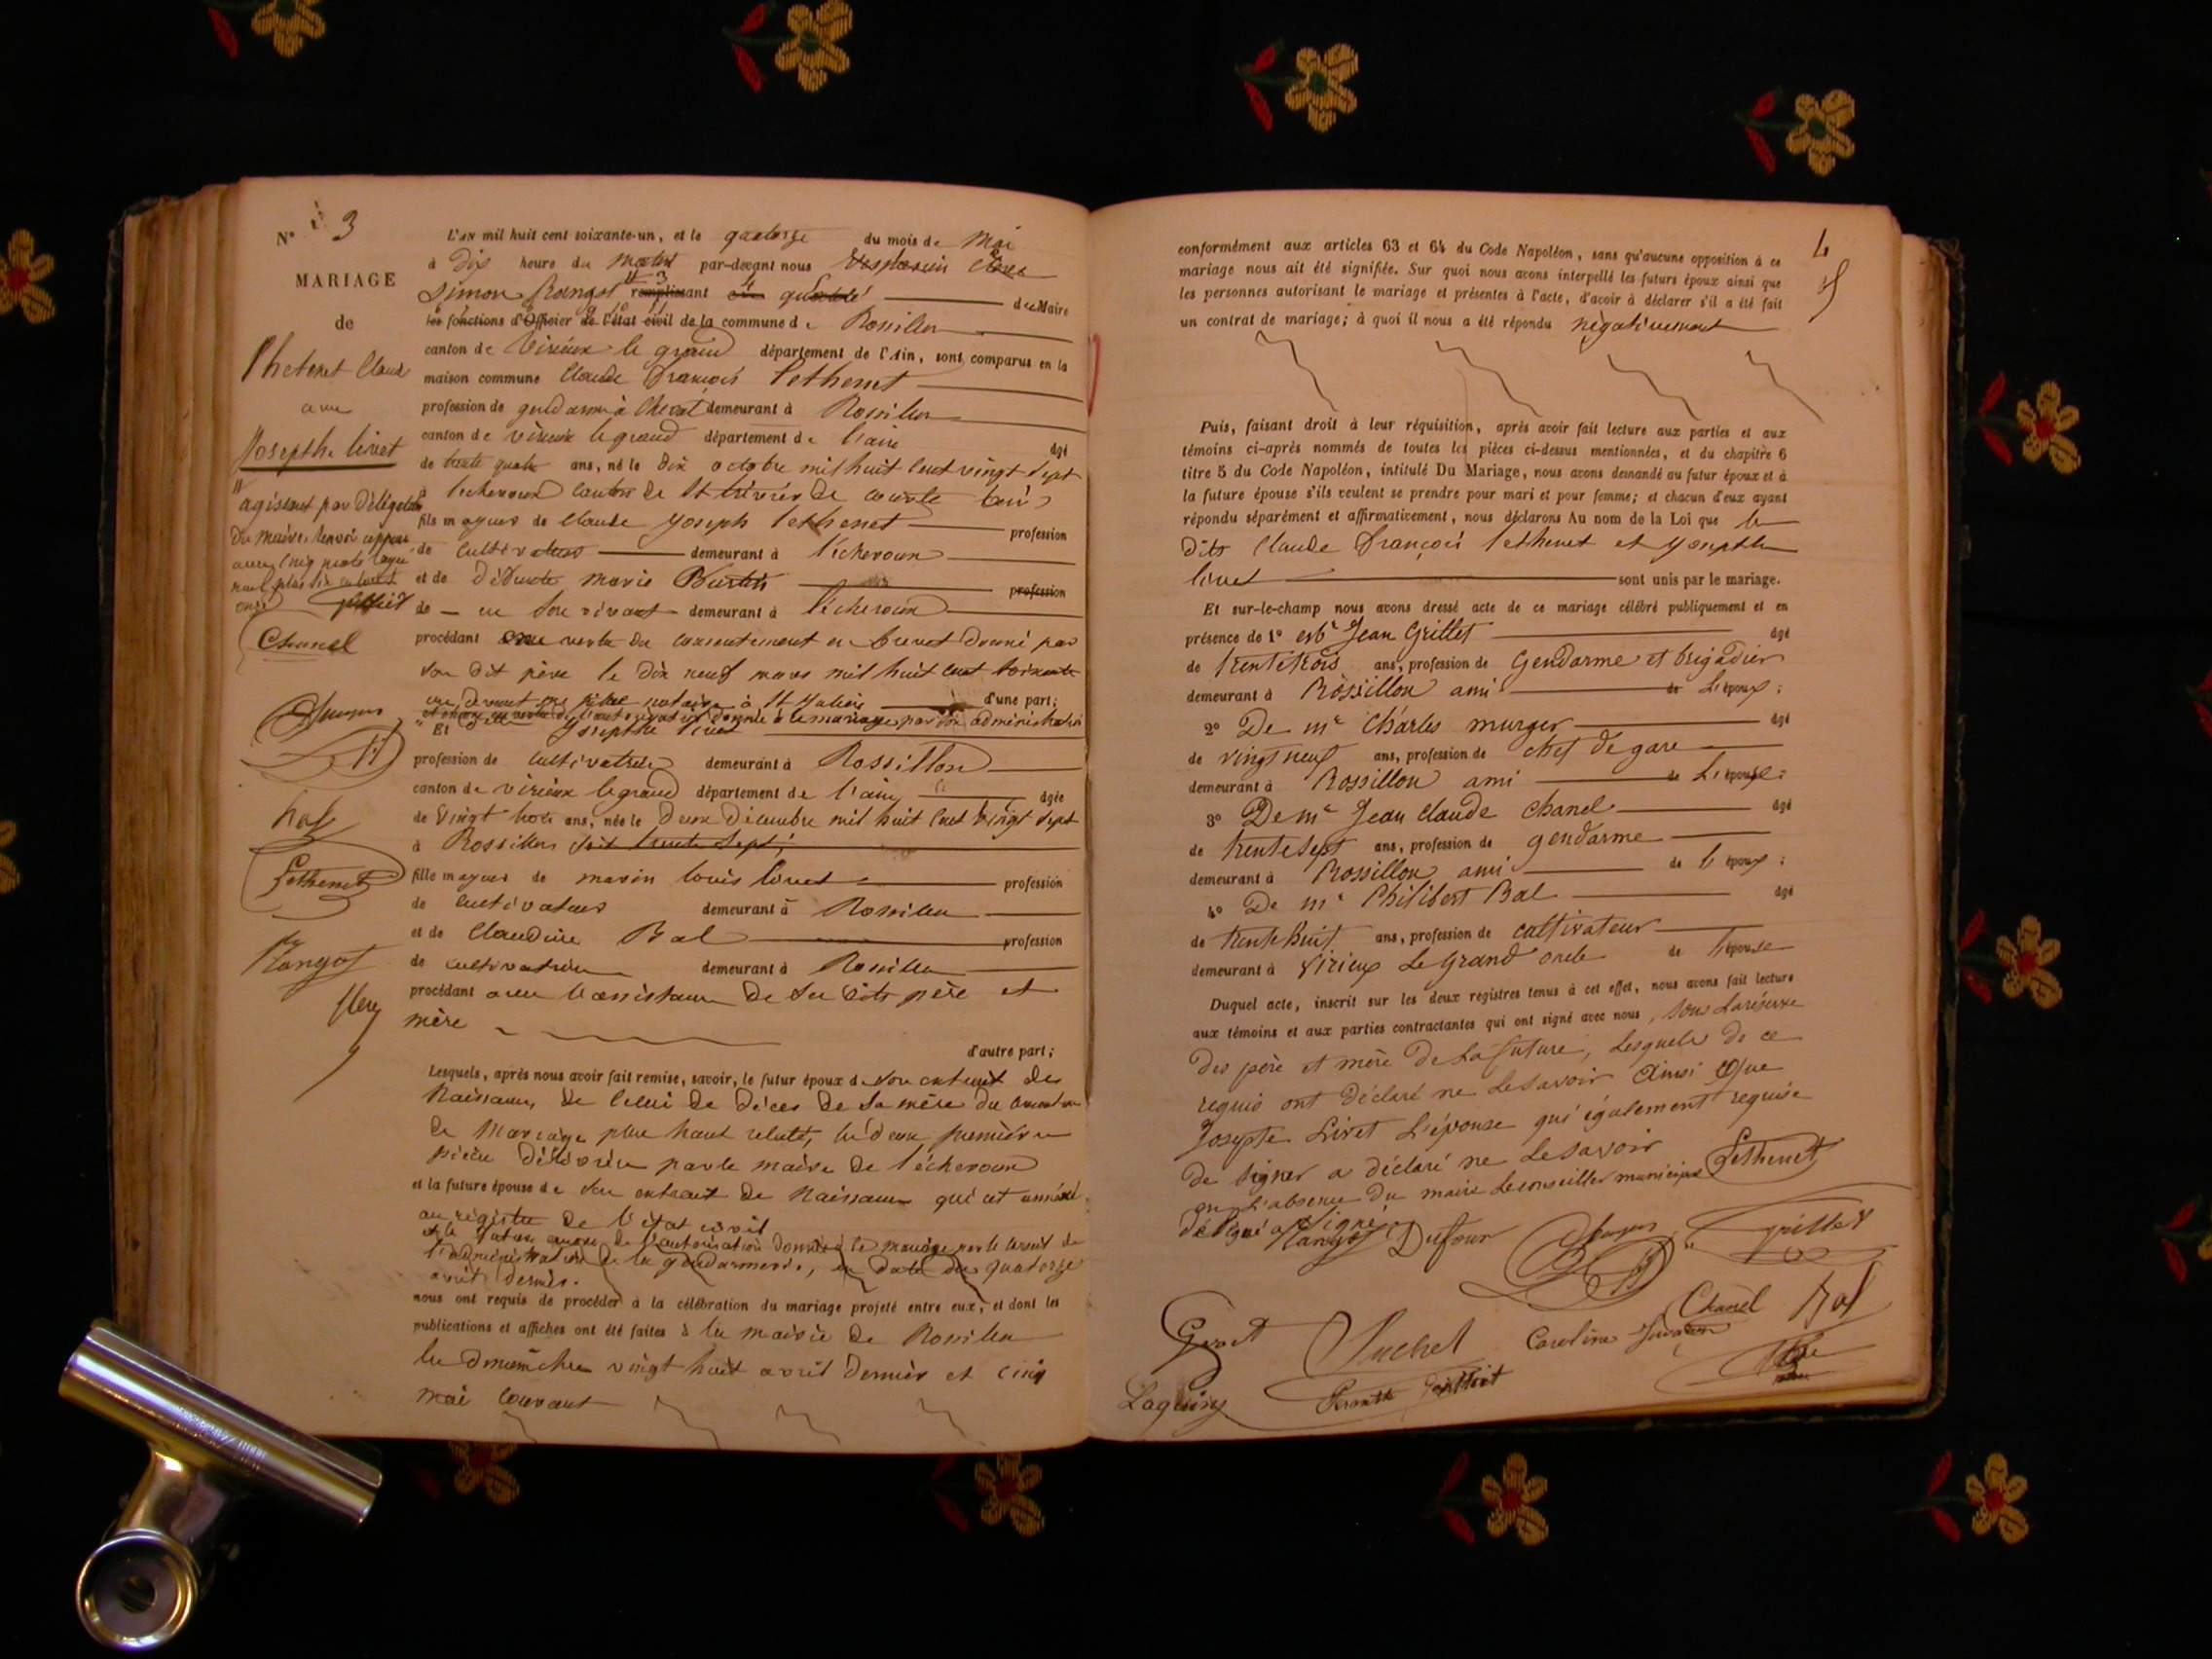 N° 3
MARIAGE
de
Phetenet Claud
avec
Josepthe livet
agissant par Délégation
du maire,
Chanel
Bal
Lethenet
Rangot
L'AN mil huit cent soixante-un, et le quatorze du mois de Mai
à Dix heure du Matin par-devant nous
Simon Rangot remplissant du Maire
les fonctions d'Officier de l'état civil de la commune de Rossillon
canton de Virieux le grand département de l'Ain, sont comparus en la
maison commune Claude François Lethenet
profession de gendarme à Cheval demeurant à Rossillon
canton de virieux le grand département de l'ain âgé
de trente quatre ans, né le dix octobre mil huit cent vingt sept
à lecheroux canton de St trivier de courte ain
fils majeur de Claude Joseph Lethenet profession
de Cultivateur demeurant à l'écheroux
et de Défunte Marie profession
de en son vivant demeurant à l'écheroux
procédant en vertu du consentement en brevet donné par
son dit père le dix neuf mars mil huit cent soixante
un devant me notaire à St Julien d'une part;
de l'autorisation donnée à le mariage par son administration
Et Josepthe livet
profession de cultivatrice demeurant à Rossillon
canton de virieux le grand département de l'ain âgée
de vingt trois ans, née le deux Décembre mil huit cent vingt sept
à Rossillon soit trente sept;
fille majeur de marin louis livet profession
de cultivateur demeurant à Rossillon
et de Claudine Bal profession
de cultivatrice demeurant à Rossillon
procédant avec l'assistance de ses dits père et
mère
d'autre part;
Lesquels, après nous avoir fait remise, savoir, le futur époux de son extrait de
Naissance, de Celui de Déces de sa mère du
de Mariage plus haut relaté, les deux premières
pièces délivrées par le maire de l'écheroux
et la future épouse de son extrait de Naissance qui est annéxé
au registre de l'état civil
et le futur encore de l'autorisation donnée à le mariage par le conseil de
l'administration de la gendarmerie, en date du quatorze
avril dernier.
nous ont requis de procéder à la célébration du mariage projeté entre eux, et dont les
publications et affiches ont été faites à la mairie de Rossillon
les dimanches vingt huit avril dernier et cinq
mai courant
4
conformément aux articles 63 et 64 du Code Napoléon, sans qu'aucune opposition à ce
mariage nous ait été signifiée. Sur quoi nous avons interpellé les futurs époux ainsi que
les personnes autorisant le mariage et présentes à l'acte, d'avoir à déclarer s'il a été fait
un contrat de mariage; à quoi il nous a été répondu négativement
Puis, faisant droit à leur réquisition, après avoir fait lecture aux parties et aux
témoins ci-après nommés de toutes les pièces ci-dessus mentionnées, et du chapitre 6
titre 5 du Code Napoléon, intitulé Du Mariage, nous avons demandé au futur époux et à
la future épouse s'ils veulent se prendre pour mari et pour femme; et chacun d'eux ayant
répondu séparément et affirmativement, nous déclarons Au nom de la Loi que les
dits Claude François Lethenet et Josepthe
livet sont unis par le mariage.
Et sur-le-champ nous avons dressé acte de ce mariage célébré publiquement et en
présence de 1° Jean Grillet âgé
de trentetrois ans, profession de Gendarme et brigadier
demeurant à Rossillon ami de L'époux;
2° De mr Charles murger âgé
de vingt neuf ans, profession de chef de gare
demeurant à Rossillon ami de L'épouse;
3° De mr Jean Claude Chanel âgé
de trente sept ans, profession de gendarme
demeurant à Rossillon ami de l'époux;
4° De mr Philibert Bal âgé
de trente huit ans, profession de cultivateur
demeurant à Virieux Le Grand oncle de l'épouse
Duquel acte, inscrit sur les deux registres tenus à cet effet, nous avons fait lecture
aux témoins et aux parties contractantes qui ont signé avec nous, sous La réserve
des père et mère de La future, Lesquels de ce
requis ont déclaré ne Le savoir ainsi Que
Josepte Livet L'épouse qui également requise
de signer a déclaré ne Le savoir Lethenet
en L'absence du maire Le conseiller municipal
délégué a signé
Rangot Dufour grillet
Chanel Bal
Suchet Caroline